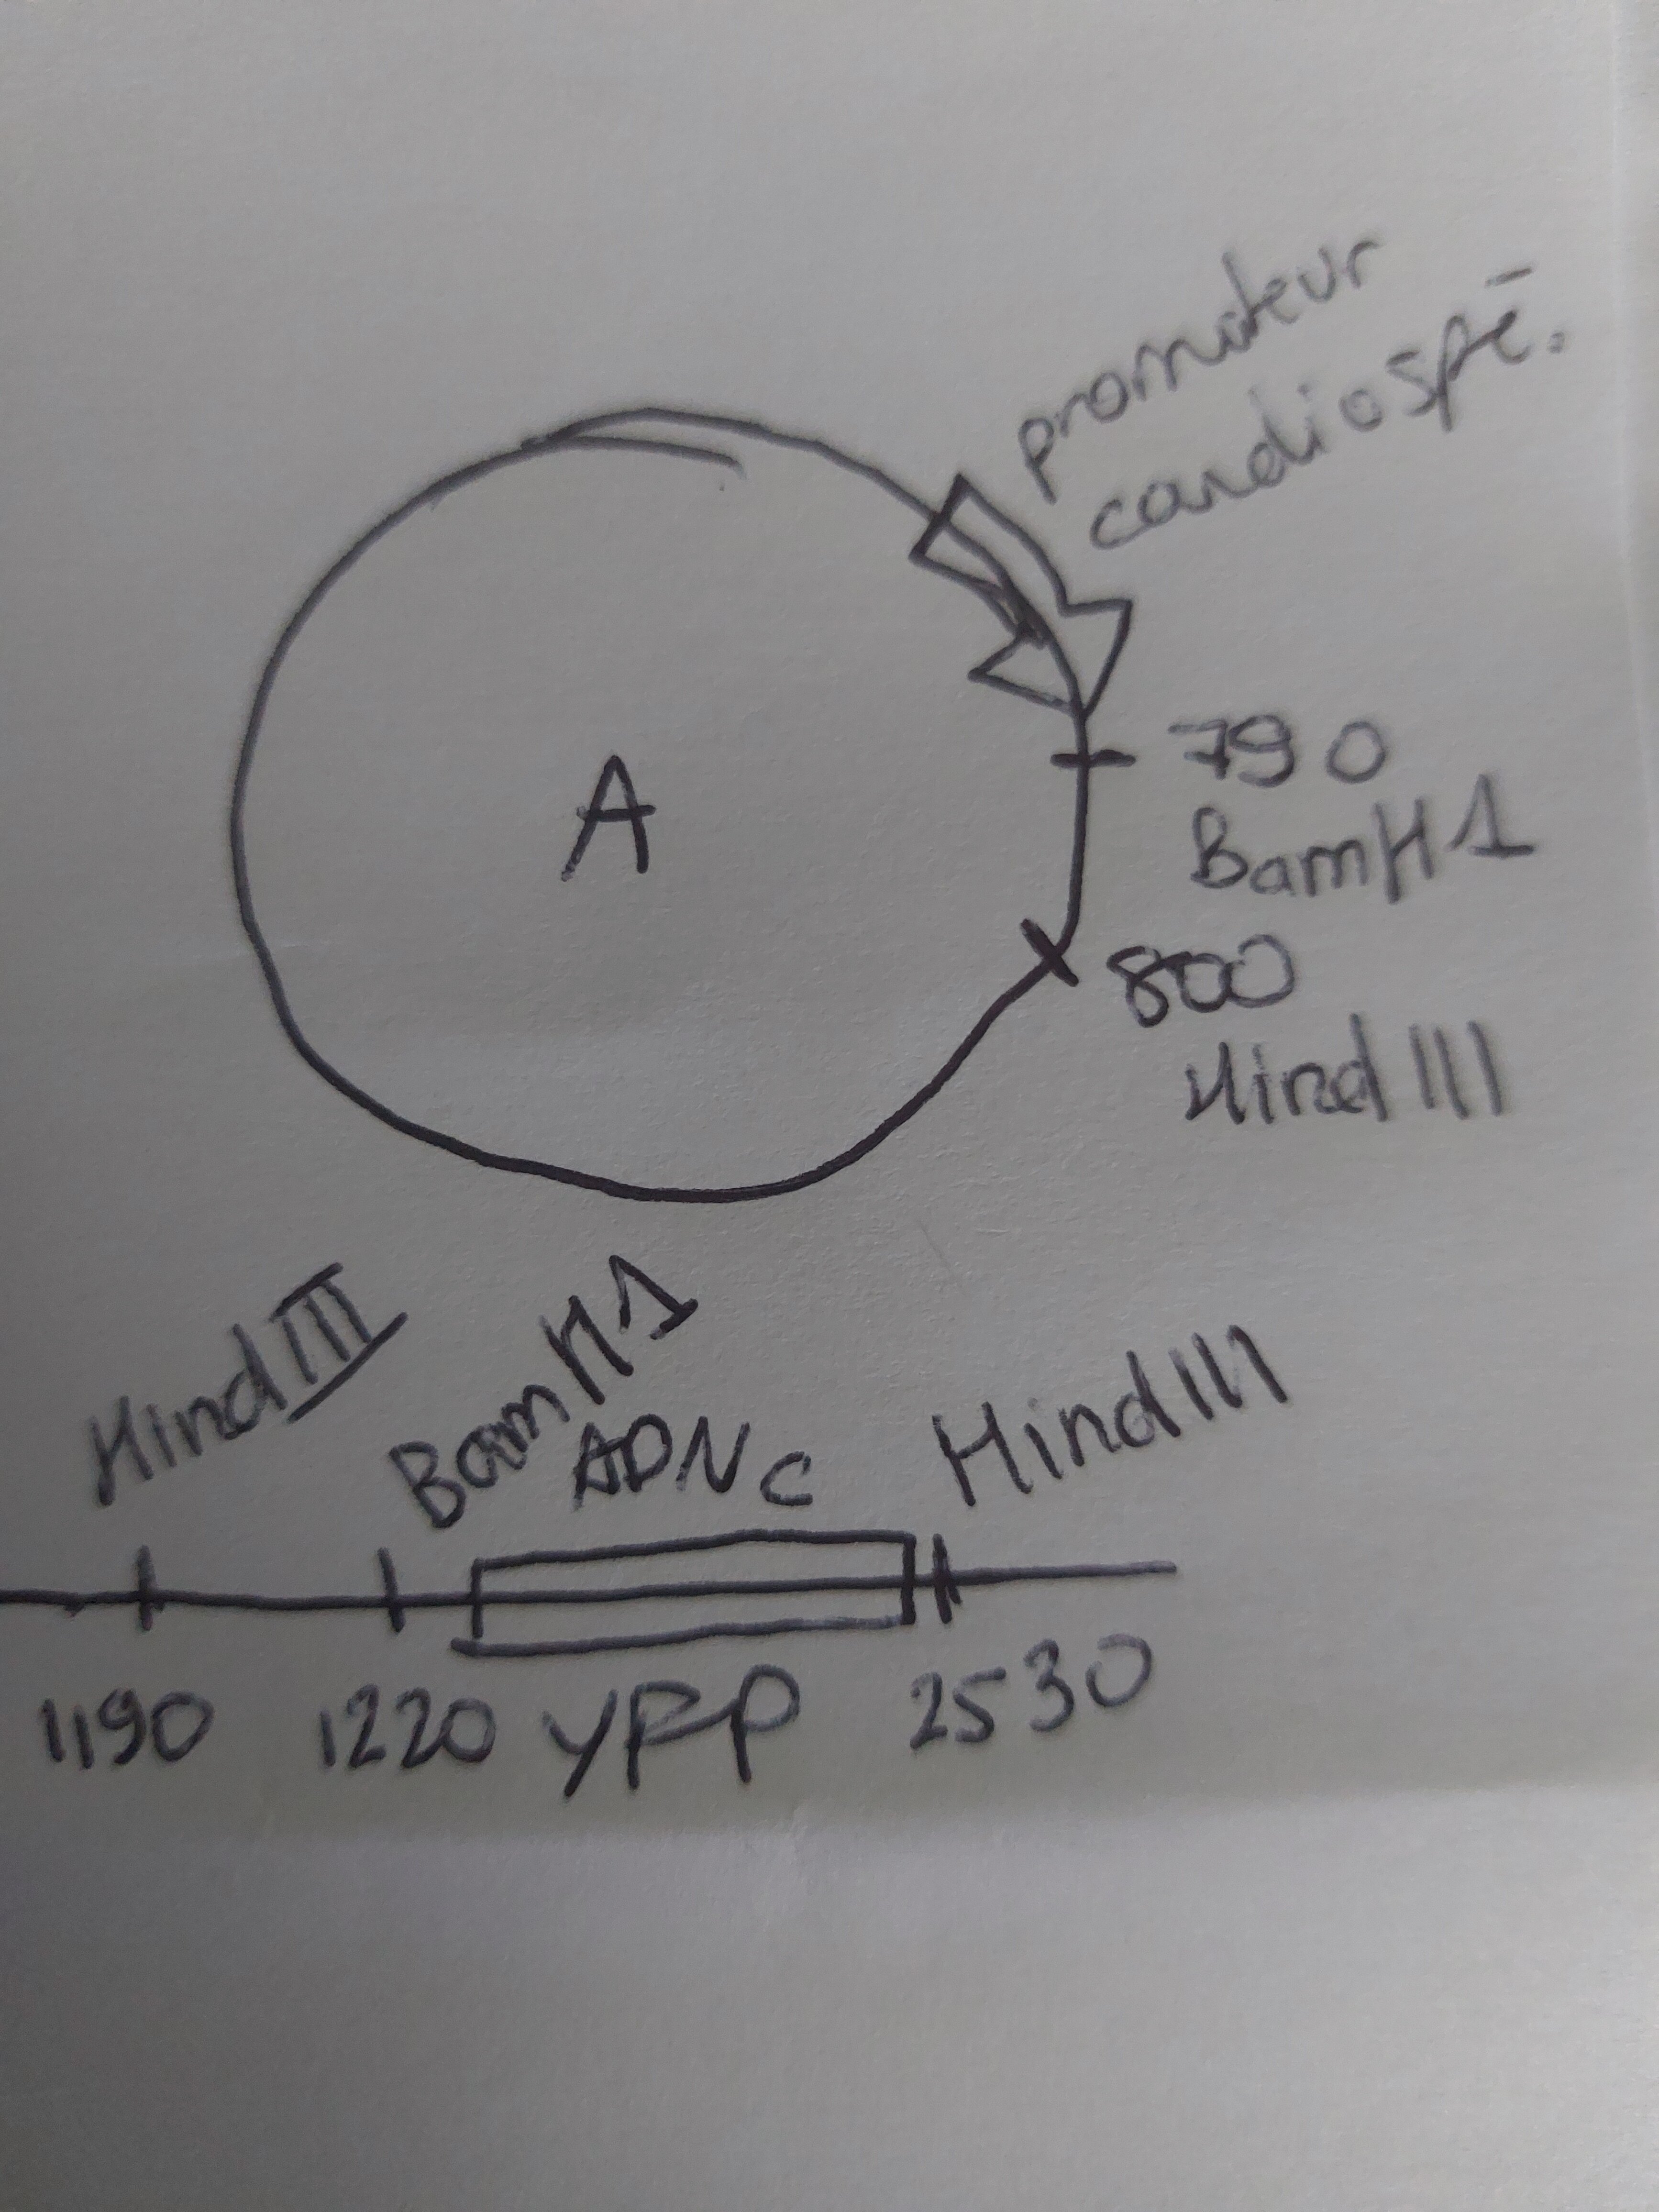 promoteur
cardiospé.
A
790
BamH1
800
HindIII
HindIII
BamH1
ADNc
HindIII
1190
1220
YFP
2530